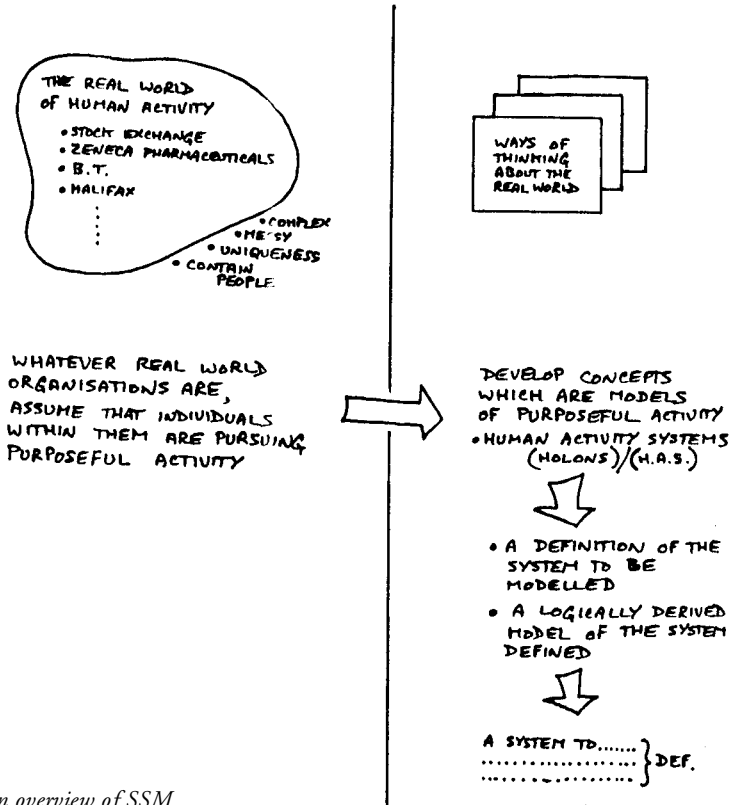 THE REAL WORLD
OF HUMAN ACTIVITY
• STOCK EXCHANGE
• ZENECA PHARMACEUTICALS
• B.T.
• HALIFAX
• COMPLEX
• MESSY
• UNIQUENESS
• CONTAIN
PEOPLE
WHATEVER REAL WORLD
ORGANISATIONS ARE,
ASSUME THAT INDIVIDUALS
WITHIN THEM ARE PURSUING
PURPOSEFUL ACTIVITY
WAYS OF
THINKING
ABOUT THE
REAL WORLD
DEVELOP CONCEPTS
WHICH ARE MODELS
OF PURPOSEFUL ACTIVITY
• HUMAN ACTIVITY SYSTEMS
(HOLONS)/(H.A.S.)
• A DEFINITION OF THE
SYSTEM TO BE
MODELLED
• A LOGICALLY DERIVED
MODEL OF THE SYSTEM
DEFINED
A SYSTEM TO....... } DEF.
n overview of SSM